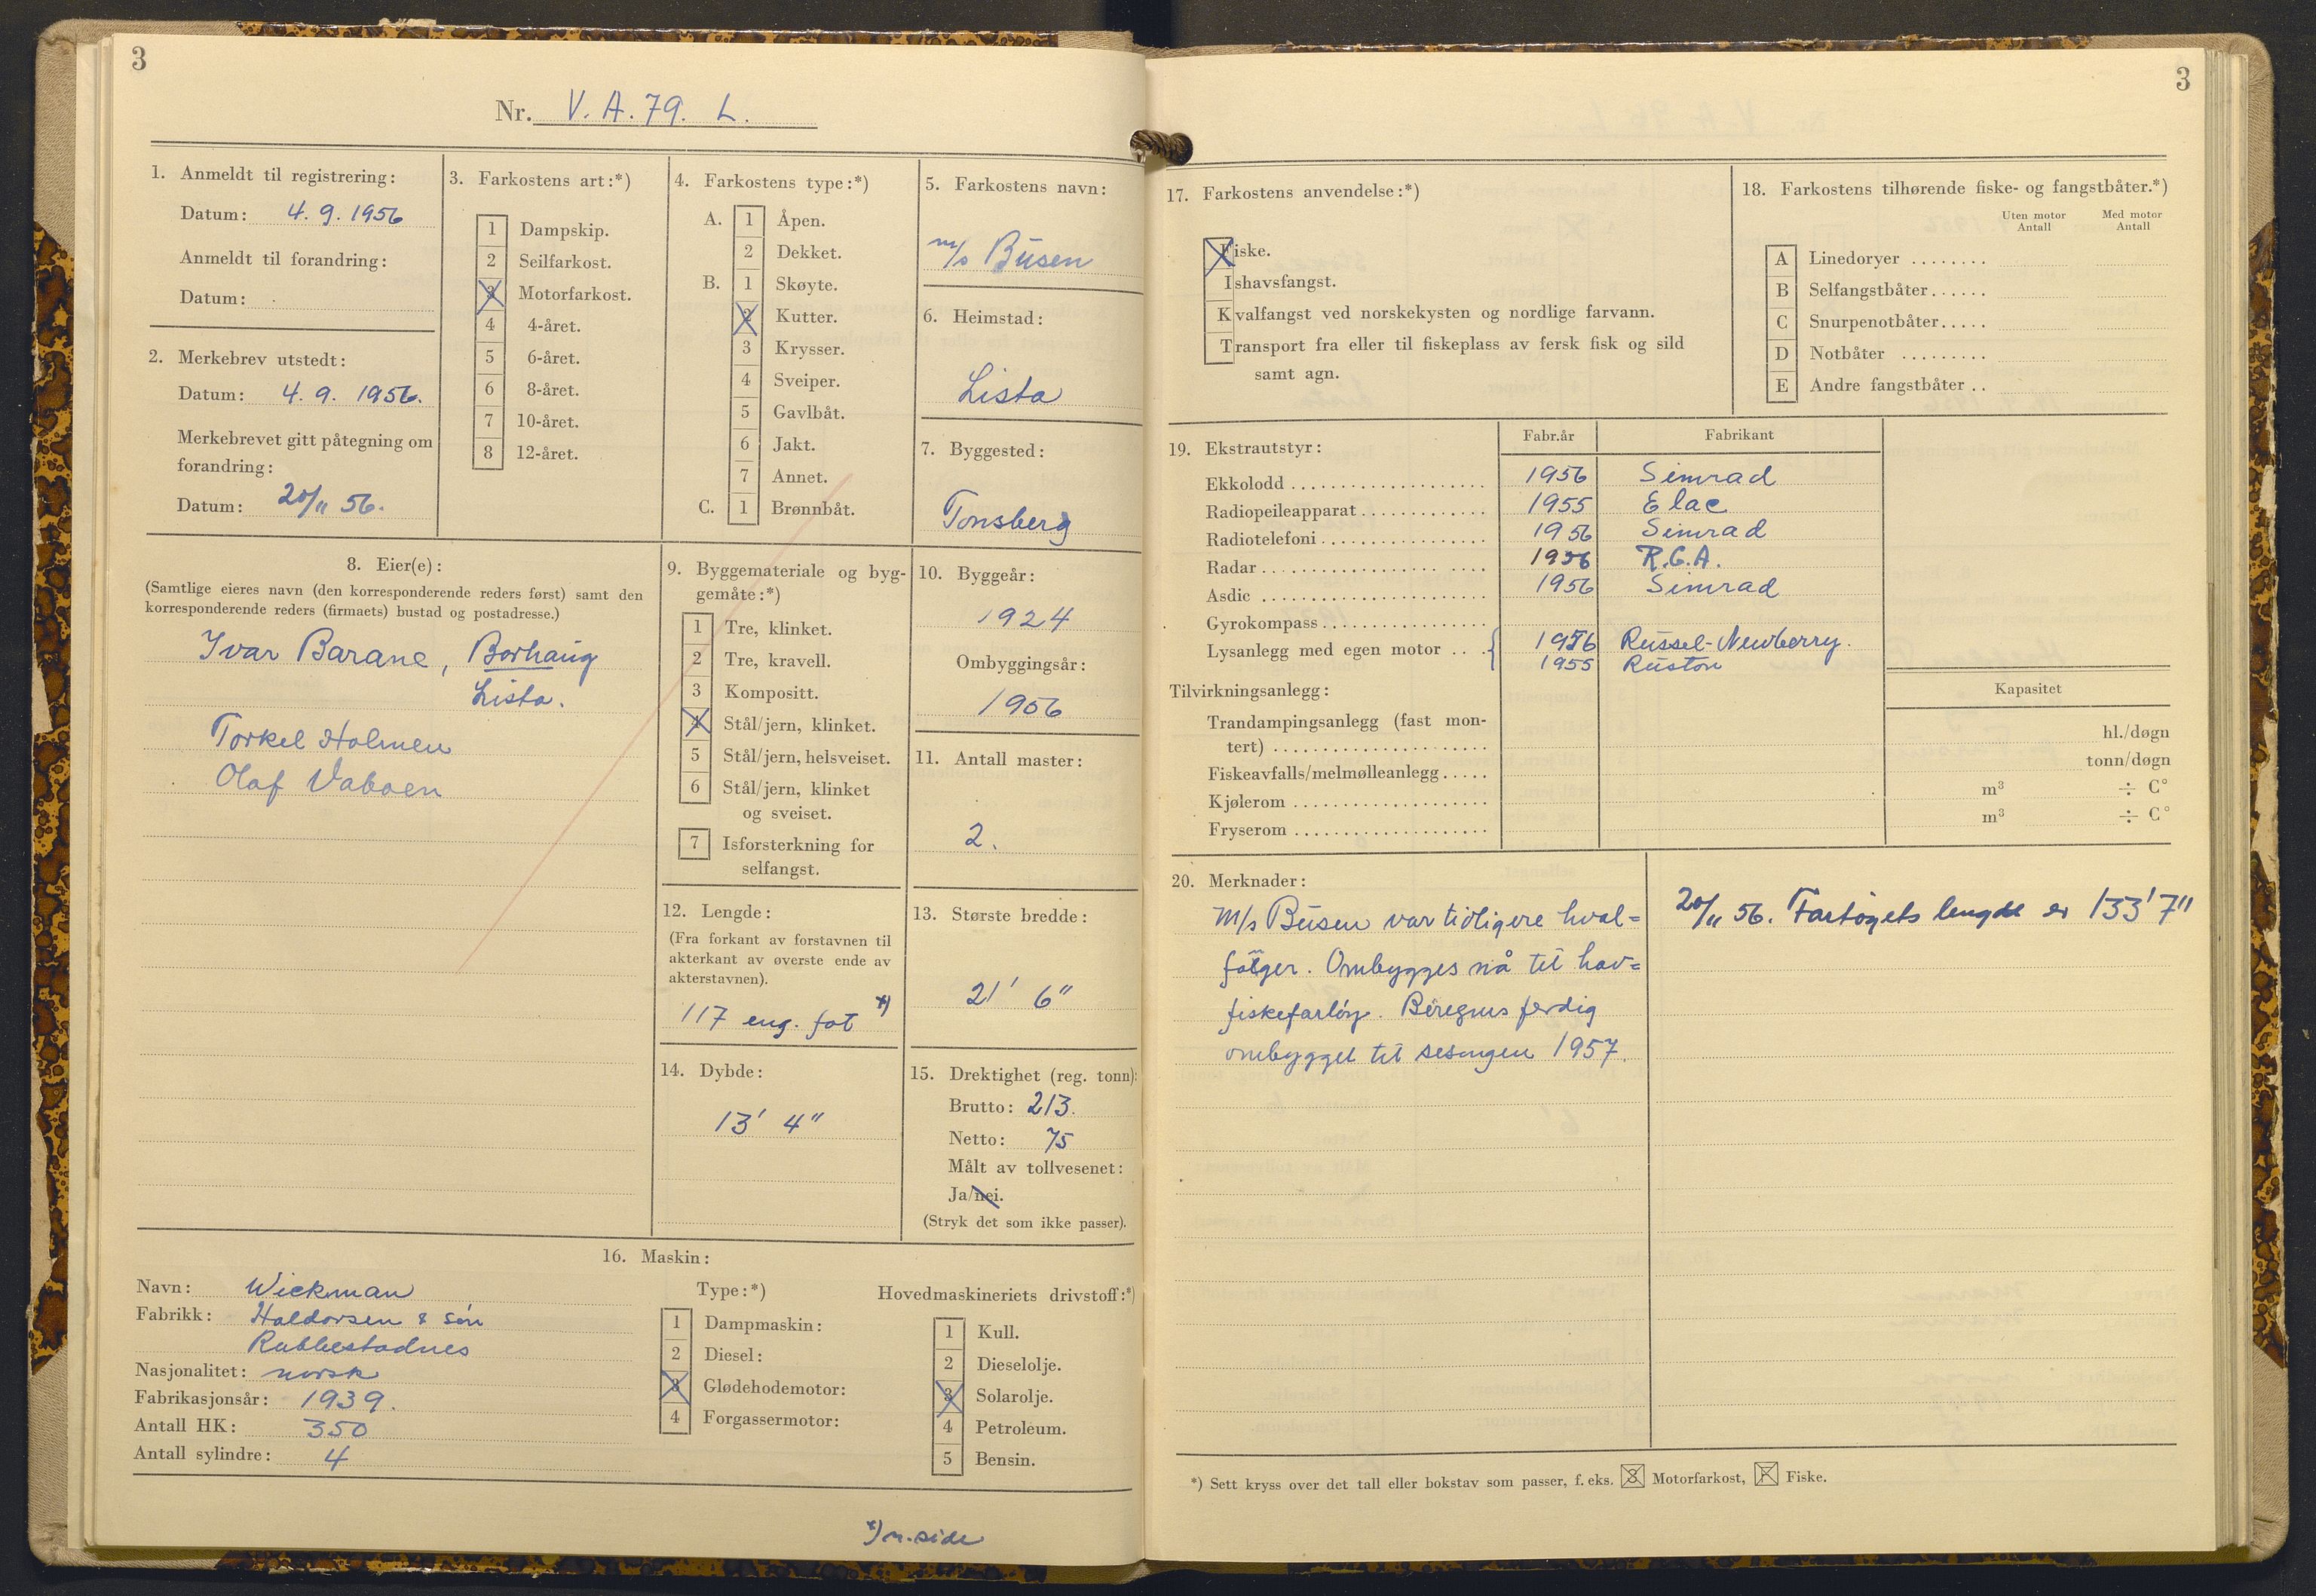 3
Nr. V. A. 79. L.
1. Anmeldt til registrering:
Datum: 4. 9. 1956
Anmeldt til forandring:
Datum:
2. Merkebrev utstedt:
Datum: 4. 9. 1956.
Merkebrevet gitt påtegning om
forandring:
Datum: 20/11 56.
3. Farkostens art:*)
1 Dampskip.
2 Seilfarkost.
3 Motorfarkost.
4 4-året.
5 6-året.
6 8-året.
7 10-året.
8 12-året.
4. Farkostens type:*)
A. 1 Åpen.
2 Dekket.
B. 1 Skøyte.
2 Kutter.
3 Krysser.
4 Sveiper.
5 Gavlbåt.
6 Jakt.
7 Annet.
C. 1 Brønnbåt.
5. Farkostens navn:
m/s Busen
6. Heimstad:
Lista
7. Byggested:
Tonsberg
8. Eier(e):
(Samtlige eieres navn (den korresponderende reders først) samt den
korresponderende reders (firmaets) bustad og postadresse.)
Ivar Barane, Borhaug
Lista.
Torkel Holmen
Olaf Vaboen
9. Byggemateriale og byg-
gemåte:*)
1 Tre, klinket.
2 Tre, kravell.
3 Kompositt.
4 Stål/jern, klinket.
5 Stål/jern, helsveiset.
6 Stål/jern, klinket
og sveiset.
7 Isforsterkning for
selfangst.
10. Byggeår:
1924
Ombyggingsår:
1956
11. Antall master:
2.
12. Lengde:
(Fra forkant av forstavnen til
akterkant av øverste ende av
akterstavnen).
117 eng. fot *)
13. Største bredde:
21' 6"
14. Dybde:
13' 4"
15. Drektighet (reg. tonn):
Brutto: 213.
Netto: 75
Målt av tollvesenet:
Ja/nei.
(Stryk det som ikke passer).
16. Maskin:
Navn: Wickman
Fabrikk: Haldorsen & Søn
Rubbestadnes
Nasjonalitet: norsk
Fabrikasjonsår: 1939.
Antall HK: 350
Antall sylindre: 4
Type:*)
1 Dampmaskin:
2 Diesel:
3 Glødehodemotor:
4 Forgassermotor:
Hovedmaskineriets drivstoff:*)
1 Kull.
2 Dieselolje.
3 Solarolje.
4 Petroleum.
5 Bensin.
*) n. side
3
17. Farkostens anvendelse:*)
Fiske.
Ishavsfangst.
Kvalfangst ved norskekysten og nordlige farvann.
Transport fra eller til fiskeplass av fersk fisk og sild
samt agn.
18. Farkostens tilhørende fiske- og fangstbåter.*)
Uten motor Med motor
Antall Antall
A Linedoryer ........
B Selfangstbåter......
C Snurpenotbåter.....
D Notbåter .........
E Andre fangstbåter ..
19. Ekstrautstyr: Fabr.år Fabrikant
Ekkolodd 1956 Simrad
Radiopeileapparat 1955 Elac
Radiotelefoni 1956 Simrad
Radar 1956 R.C.A.
Asdic 1956 Simrad
Gyrokompass
Lysanlegg med egen motor 1956 Russel-Newberry.
1955 Ruston
Tilvirkningsanlegg: Kapasitet
Trandampingsanlegg (fast mon-
tert) hl./døgn
Fiskeavfalls/melmølleanlegg tonn/døgn
Kjølerom m³ ÷ C°
Fryserom m³ ÷ C°
20. Merknader:
M/s Busen var tidligere hval=
fanger. Ombygges nå til hav=
fiskefartöy. Beregnes ferdig
ombygget til sesongen 1957.
20/11 56. Fartøyets lengde er 133' 7"
*) Sett kryss over det tall eller bokstav som passer, f. eks. 3 Motorfarkost, F Fiske.